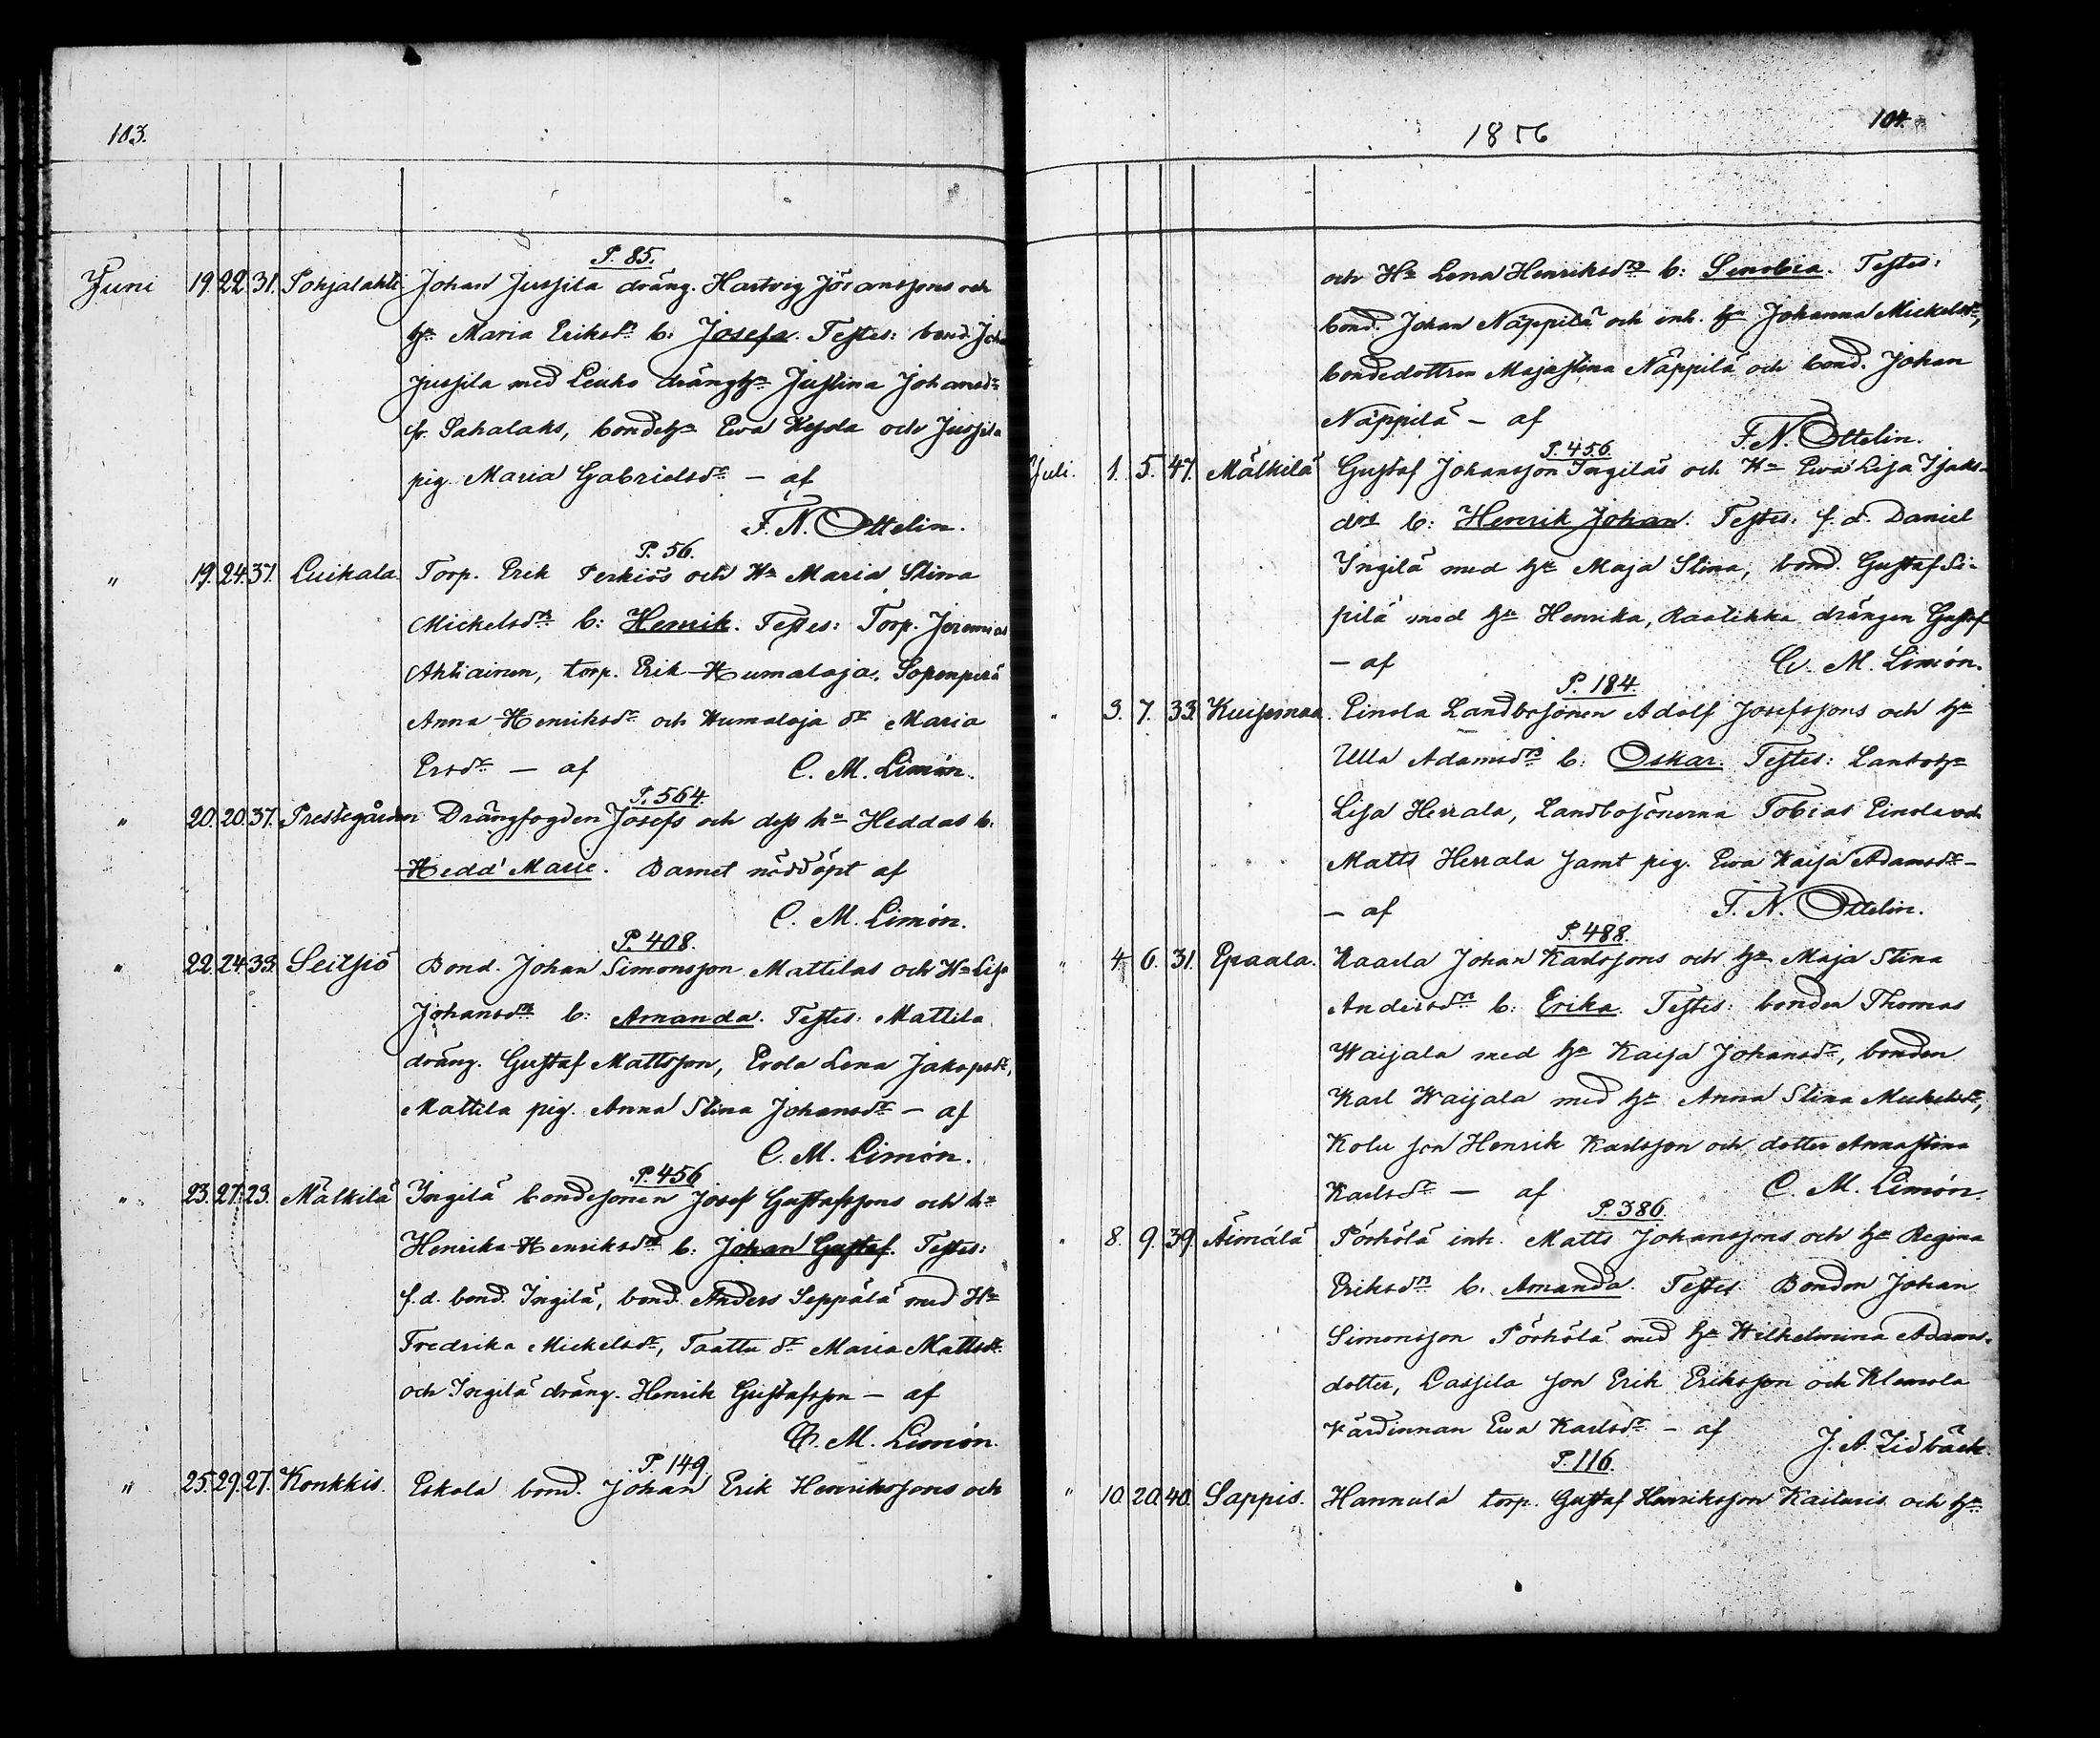 103.
P. 85.
Juni 19. 22. 31. Pohjalahti Johan Jussila dräng. Hartvig Jöranssons och
hu Maria Eriksdrs b: Josefa. Testes: bond. Joha
Jussila med Leuko dränghu Justina Johansdr
fr. Sahalaks, bondehu Eva Keijola och Jussila
pig. Maria Gabrielsdr – af
F. N. Ottelin.
P. 56.
" 19. 24. 37. Luikala. Torp. Erik Perkiös och Hu Maria Stina
Mickelsdrs b: Henrik. Testes: Torp. Jeremias
Ahtiainen, torp. Erik Humaloja, Sopenperä
Anna Henriksdr och Humaloja dr Maria
Ersdr – af C. M. Limón.
P. 564.
" 20. 20. 37. Prestegården Drängfogden Josefs och dess hu Heddas b:
Hedd' Marie. Barnet nöddöpt af
C. M. Limón.
P. 408.
" 22. 24. 33. Seitsiö Bond. Johan Simonsson Mattilas och Hu Lisa
Johansdrs b: Amanda. Testes: Mattila
dräng. Gustaf Mattsson, Erola Lena Jakopsdr,
Mattila pig. Anna Stina Johansdr – af
C. M. Limón.
P. 456
" 23. 27. 23. Mälkilä Yngilä bondesonen Josef Gustafssons och hu
Henrika Henriksdrs b: Johan Gustaf. Testes:
f.d. bond. Ingilä, bond. Anders Seppälä med Hu
Fredrika Mickelsdr, Taattu dr Maria Mattsdr
och Ingilä dräng. Henrik Gustafsson – af
C. M. Limón.
P. 149
" 25. 29. 27. Konkkis. Eskola bond. Johan Erik Henrikssons och
1856
104.
och Hu Lena Henriksdrs b: Senobia. Testes:
bond. Johan Näppilä och inh. hu Johanna Mickelsdr,
bondedottren Majastina Näppilä och bond. Johan
Näppilä – af F. N. Ottelin.
P. 456.
Juli. 1. 5. 47. Mälkilä Gustaf Johansson Ingiläs och Hu Eva Lisa Isaks-
drs b: Henrik Johan. Testes: f.d. Daniel
Yngilä med hu Maja Stina, bond. Gustaf Se-
pilä med hu Henrika, Raatikka drängen Gustaf
– af C. M. Limón.
P. 184.
" 3. 7. 33. Kuisemaa. Einola Landbosonen Adolf Josefssons och hu
Ulla Adamsdrs b: Oskar. Testes: Lantbohu
Lisa Herrala, Landbosönerna Tobias Einola och
Matts Herrala samt pig. Eva Kaisa Adamsdr –
– af F. N. Ottelin.
P. 488.
" 4. 6. 31. Epaala. Kaarla Johan Karlssons och hu Maja Stina
Andersdrs b: Erika. Testes: bonden Thomas
Waijala med hu Kaisa Johansdr, bonden
Karl Waijala med hu Anna Stina Mickelsdr,
Kolu son Henrik Karlsson och dotter Annastina
Karlsdr – af C. M. Limón.
P. 386.
" 8. 9. 39. Äimälä Pörhölä inh. Matts Johanssons och hu Regina
Eriksdrs b: Amanda. Testes: Bonden Johan
Simonsson Pörhölä med hu Wilhelmina Adams-
dotter, Lassila son Erik Eriksson och Klemola
värdinnan Eva Karlsdr – af J. A. Lidbäck.
P. 116.
" 10. 20. 40. Sappis. Hannula torp. Gustaf Henriksson Kailaris och hu